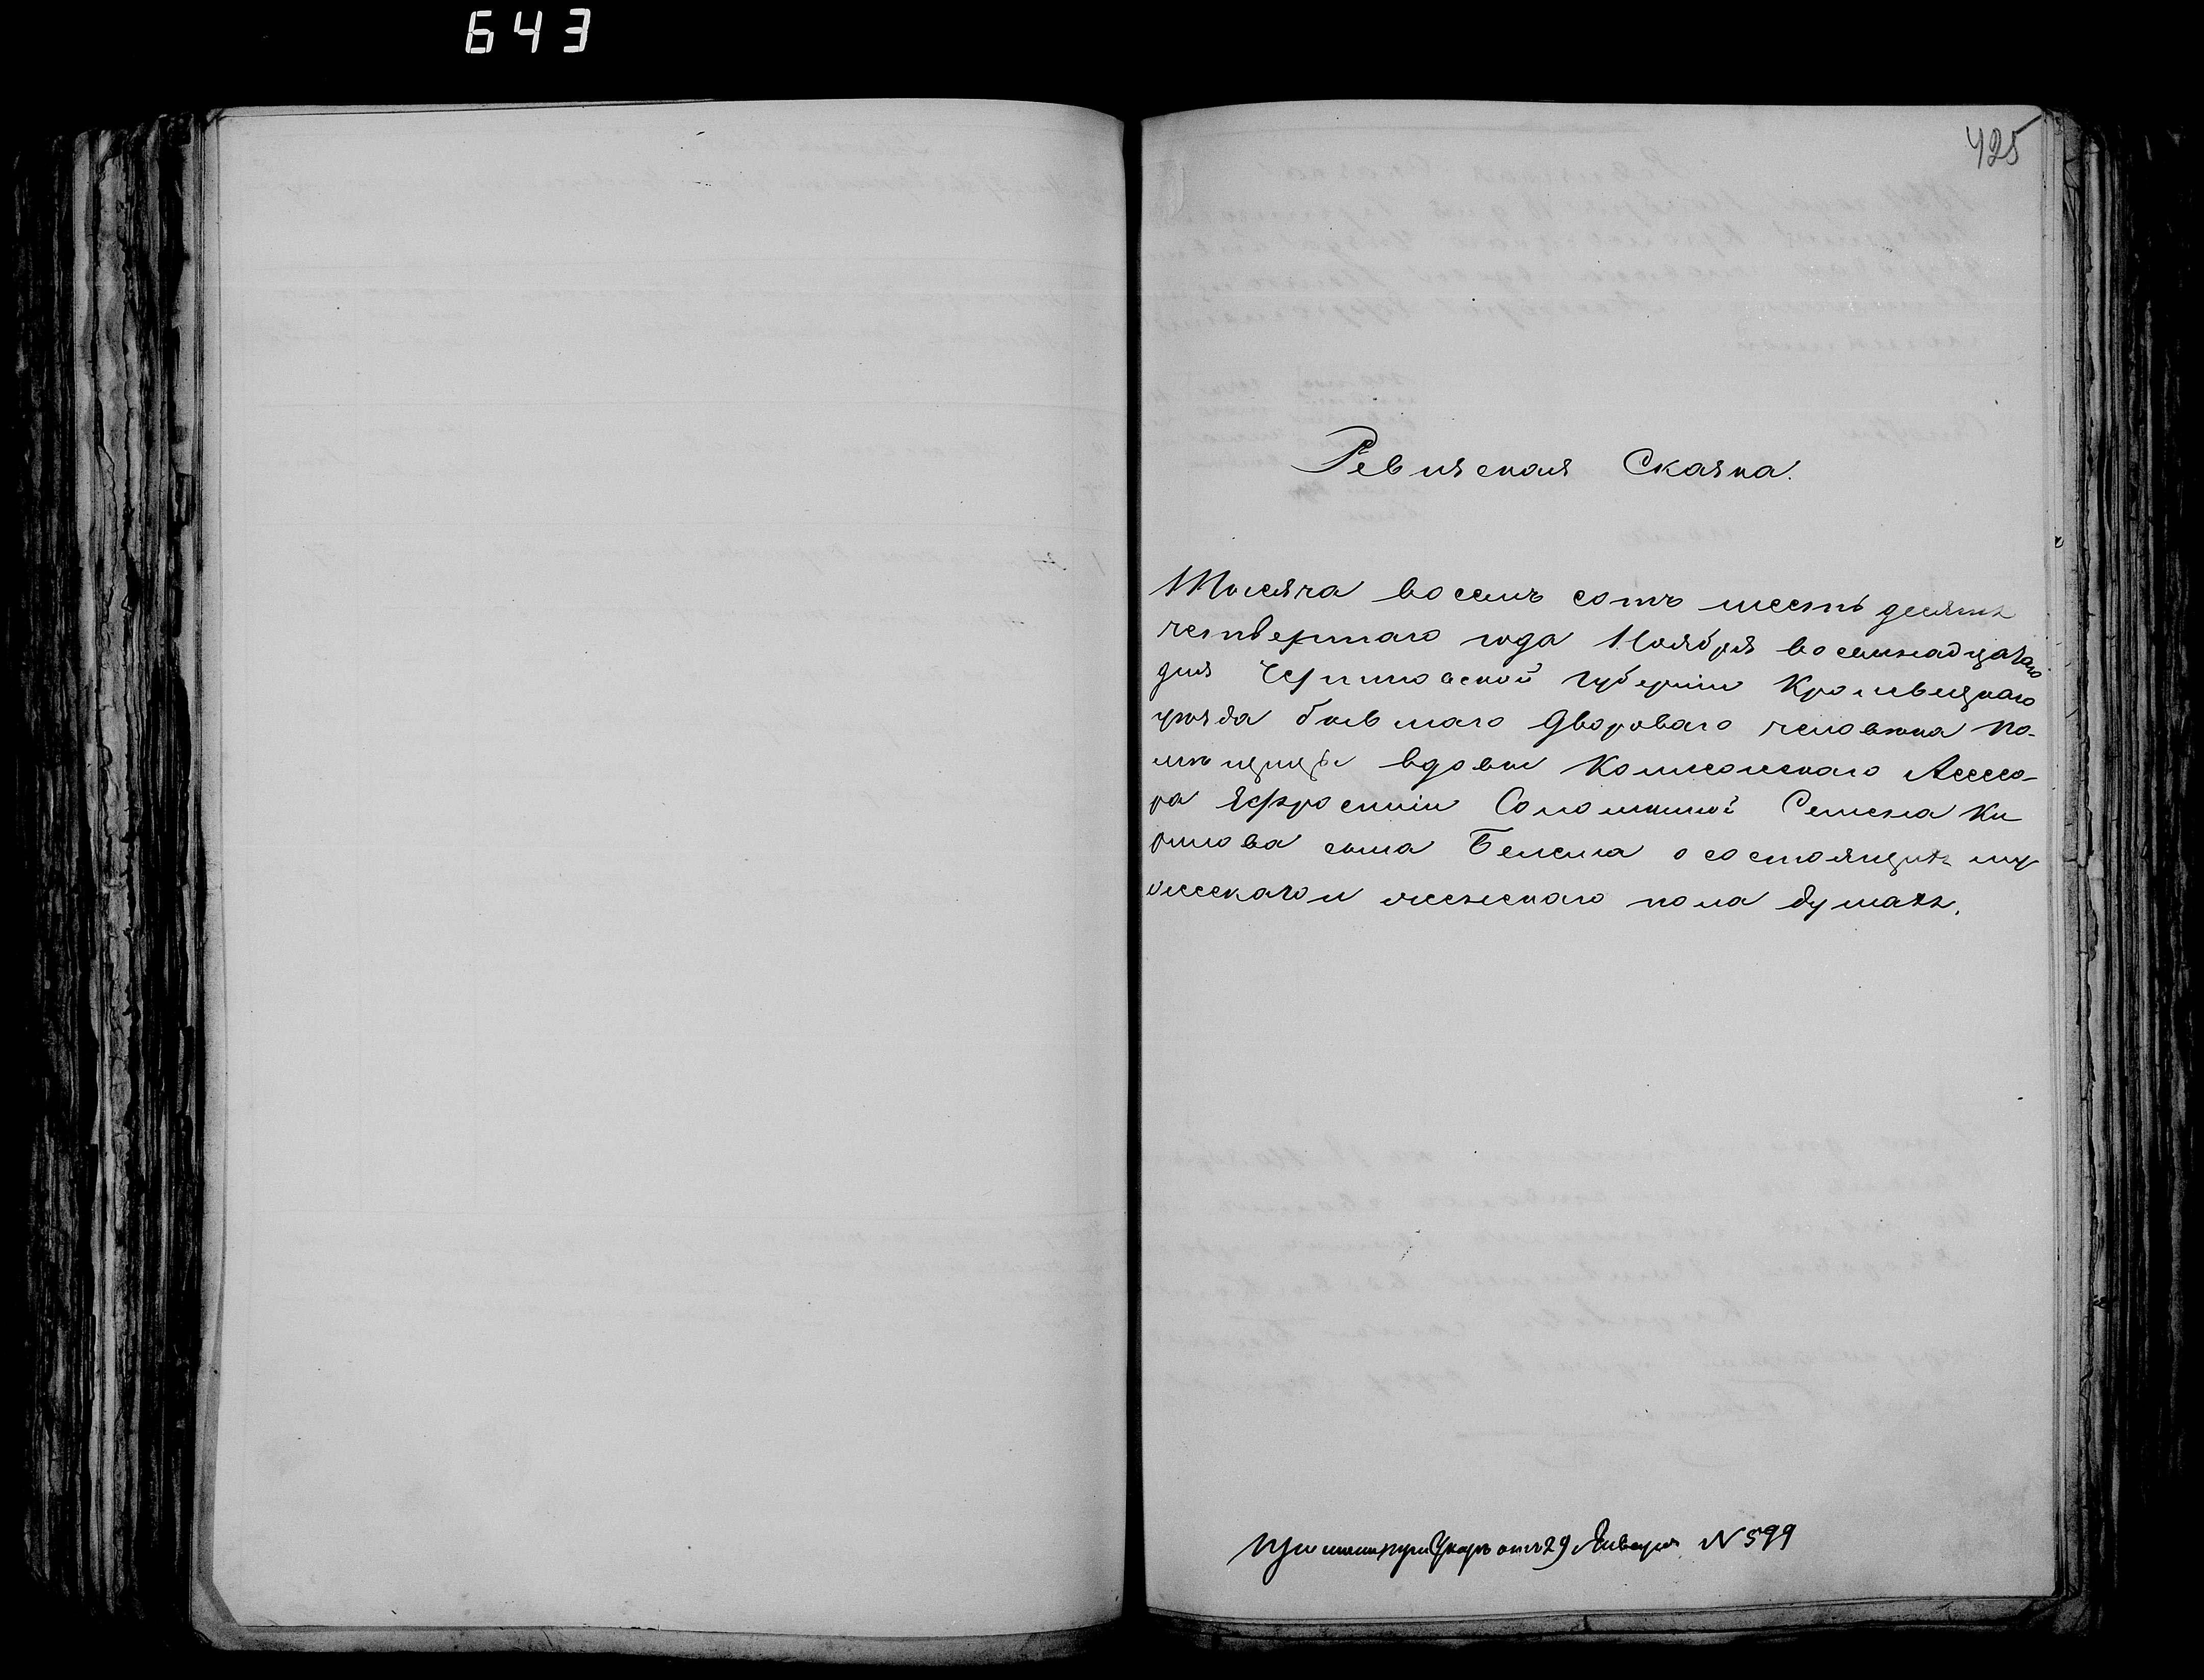 643
425
Ревизская Сказка.
Тысяча восемь сотъ шесть десятъ
четвертаго года Ноября восемнадцатаго
дня Черниговской губерніи Кролевецкаго
уѣзда бывшаго Двороваго человѣка по-
мѣщицы вдовы Коллежскаго Ассесо-
ра Ефросиніи Соломкиной Семена Ки
рилова сына Беленка о состоящихъ му
жескаго и женскаго пола душахъ.
При отъ 29 Января N 599